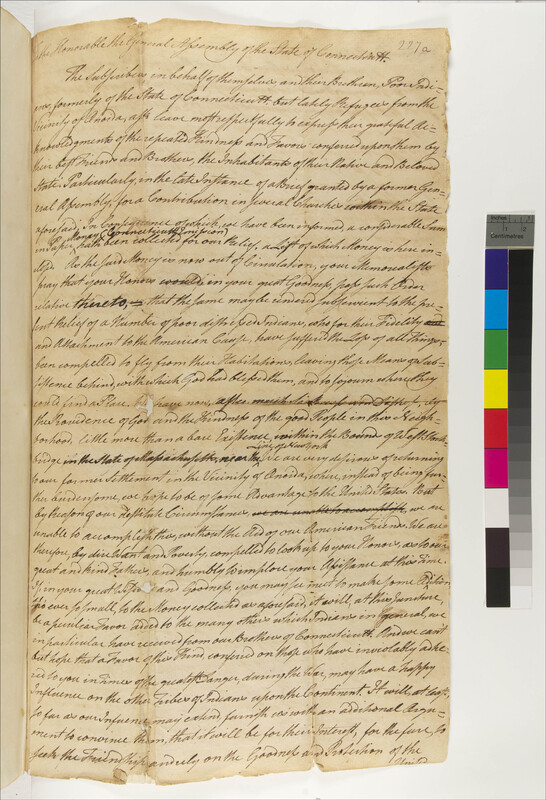 To the Honorable the General Assembly of the State of Connecticutt.
227a
The Subscribers in behalf of themselves and their Brethren, Poor Indi-
ans, formerly of the State of Connecticutt but lately Refugees from the
Vicinity of Onoida, ask leave most respectfully to express their grateful Ac-
knowledgments of the repeated Kindness and Favors conferred upon them by
their best Friends and Brothers, the Inhabitants of their Native and Beloved
State. Particularly, in the late Instance of a Brief granted by a former Gen-
eral Assembly, for a Contribution in several Churches within the State
aforesaid; In Consequence of which, we have been informed, a considerable Sum
Money (Connecticutt Emission)
in Paper hath been collected for our Relief, a List of which Money where in-
closed. As the said Money is now out of Circulation, your Memorialists
pray that your Honors would in your great Goodness, pass such Order
relative thereto, that the same may be rendered subservient to the pre-
sent Relief of a Number of poor distressed Indians, who for their Fidelity and
and Attachment to the American Cause, have suffered the Loss of all Things,
been compelled to fly from their Habitations, leaving those Means of Sub-
sistence behind, with which God had blessed them, and to sojourn where they
could find a Place. We have now, after much by
the Providence of God and the Kindness of the good People in this Neigh-
borhood, little more than a bare Existence, within the Bounds of West Stock-
bridge in the State of Massachusetts, near the We are very desirous of returning
to our former Settlement in the Vicinity of Onoida, where, instead of being fur-
ther burdensome, we hope to be of some Advantage to the United States. But
by Reason of our destitute Circumstances, we are unable to accomplish, we are
unable to accomplish this, without the Aid of our American Friends. We are
therefore, by dire Want and Poverty, compelled to look up to your Honors, as to our
great and kind Fathers, and humbly to implore your Assistance at this Time.
If, in your great Wisdom and Goodness, you may see meet to make some Addition
tho' ever so small, to the Money collected as aforesaid, it will, at this Juncture,
be a peculiar Favor added to the many others which Indians in general, and we
in particular have received from our Brothers of Connecticutt. And we can't
but hope that a Favor of this Kind, conferred on those who have inviolably adhe-
red to you in Times of the greatest Danger, during the War, may have a happy
Influence on the other Tribes of Indians upon the Continent. It will at least,
so far as our Influence may extend, furnish us with an additional Argu-
ment to convince them, that it will be for their Interest, for the future, to
seek the Friendship and rely on the Goodness and Protection of the
United
Inches
Centimetres